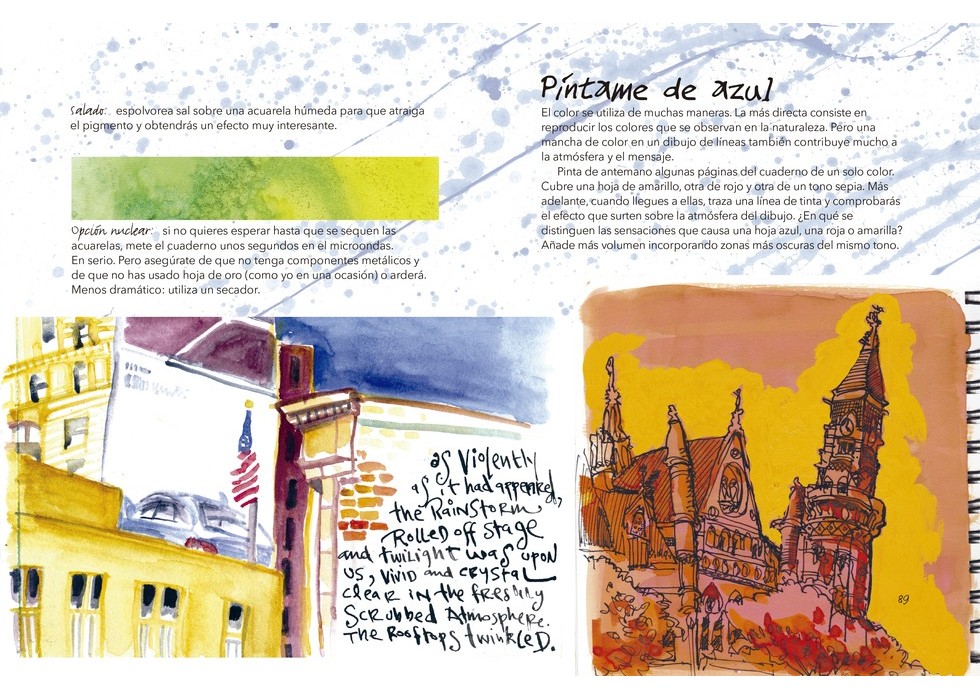 Salado: espolvorea sal sobre una acuarela húmeda para que atraiga
el pigmento y obtendrás un efecto muy interesante.
Opción nuclear: si no quieres esperar hasta que se sequen las
acuarelas, mete el cuaderno unos segundos en el microondas.
En serio. Pero asegúrate de que no tenga componentes metálicos y
de que no has usado hoja de oro (como yo en una ocasión) o arderá.
Menos dramático: utiliza un secador.
as Violently
as it had appeared,
the RainStorm
Rolled off Stage
and twilight was upon
us, vivid and crystal
clear in the freshly
Scrubbed Atmosphere.
The Rooftops twinkled.
Píntame de azul
El color se utiliza de muchas maneras. La más directa consiste en
reproducir los colores que se observan en la naturaleza. Pero una
mancha de color en un dibujo de líneas también contribuye mucho a
la atmósfera y el mensaje.
Pinta de antemano algunas páginas del cuaderno de un solo color.
Cubre una hoja de amarillo, otra de rojo y otra de un tono sepia. Más
adelante, cuando llegues a ellas, traza una línea de tinta y comprobarás
el efecto que surten sobre la atmósfera del dibujo. ¿En qué se
distinguen las sensaciones que causa una hoja azul, una roja o amarilla?
Añade más volumen incorporando zonas más oscuras del mismo tono.
89